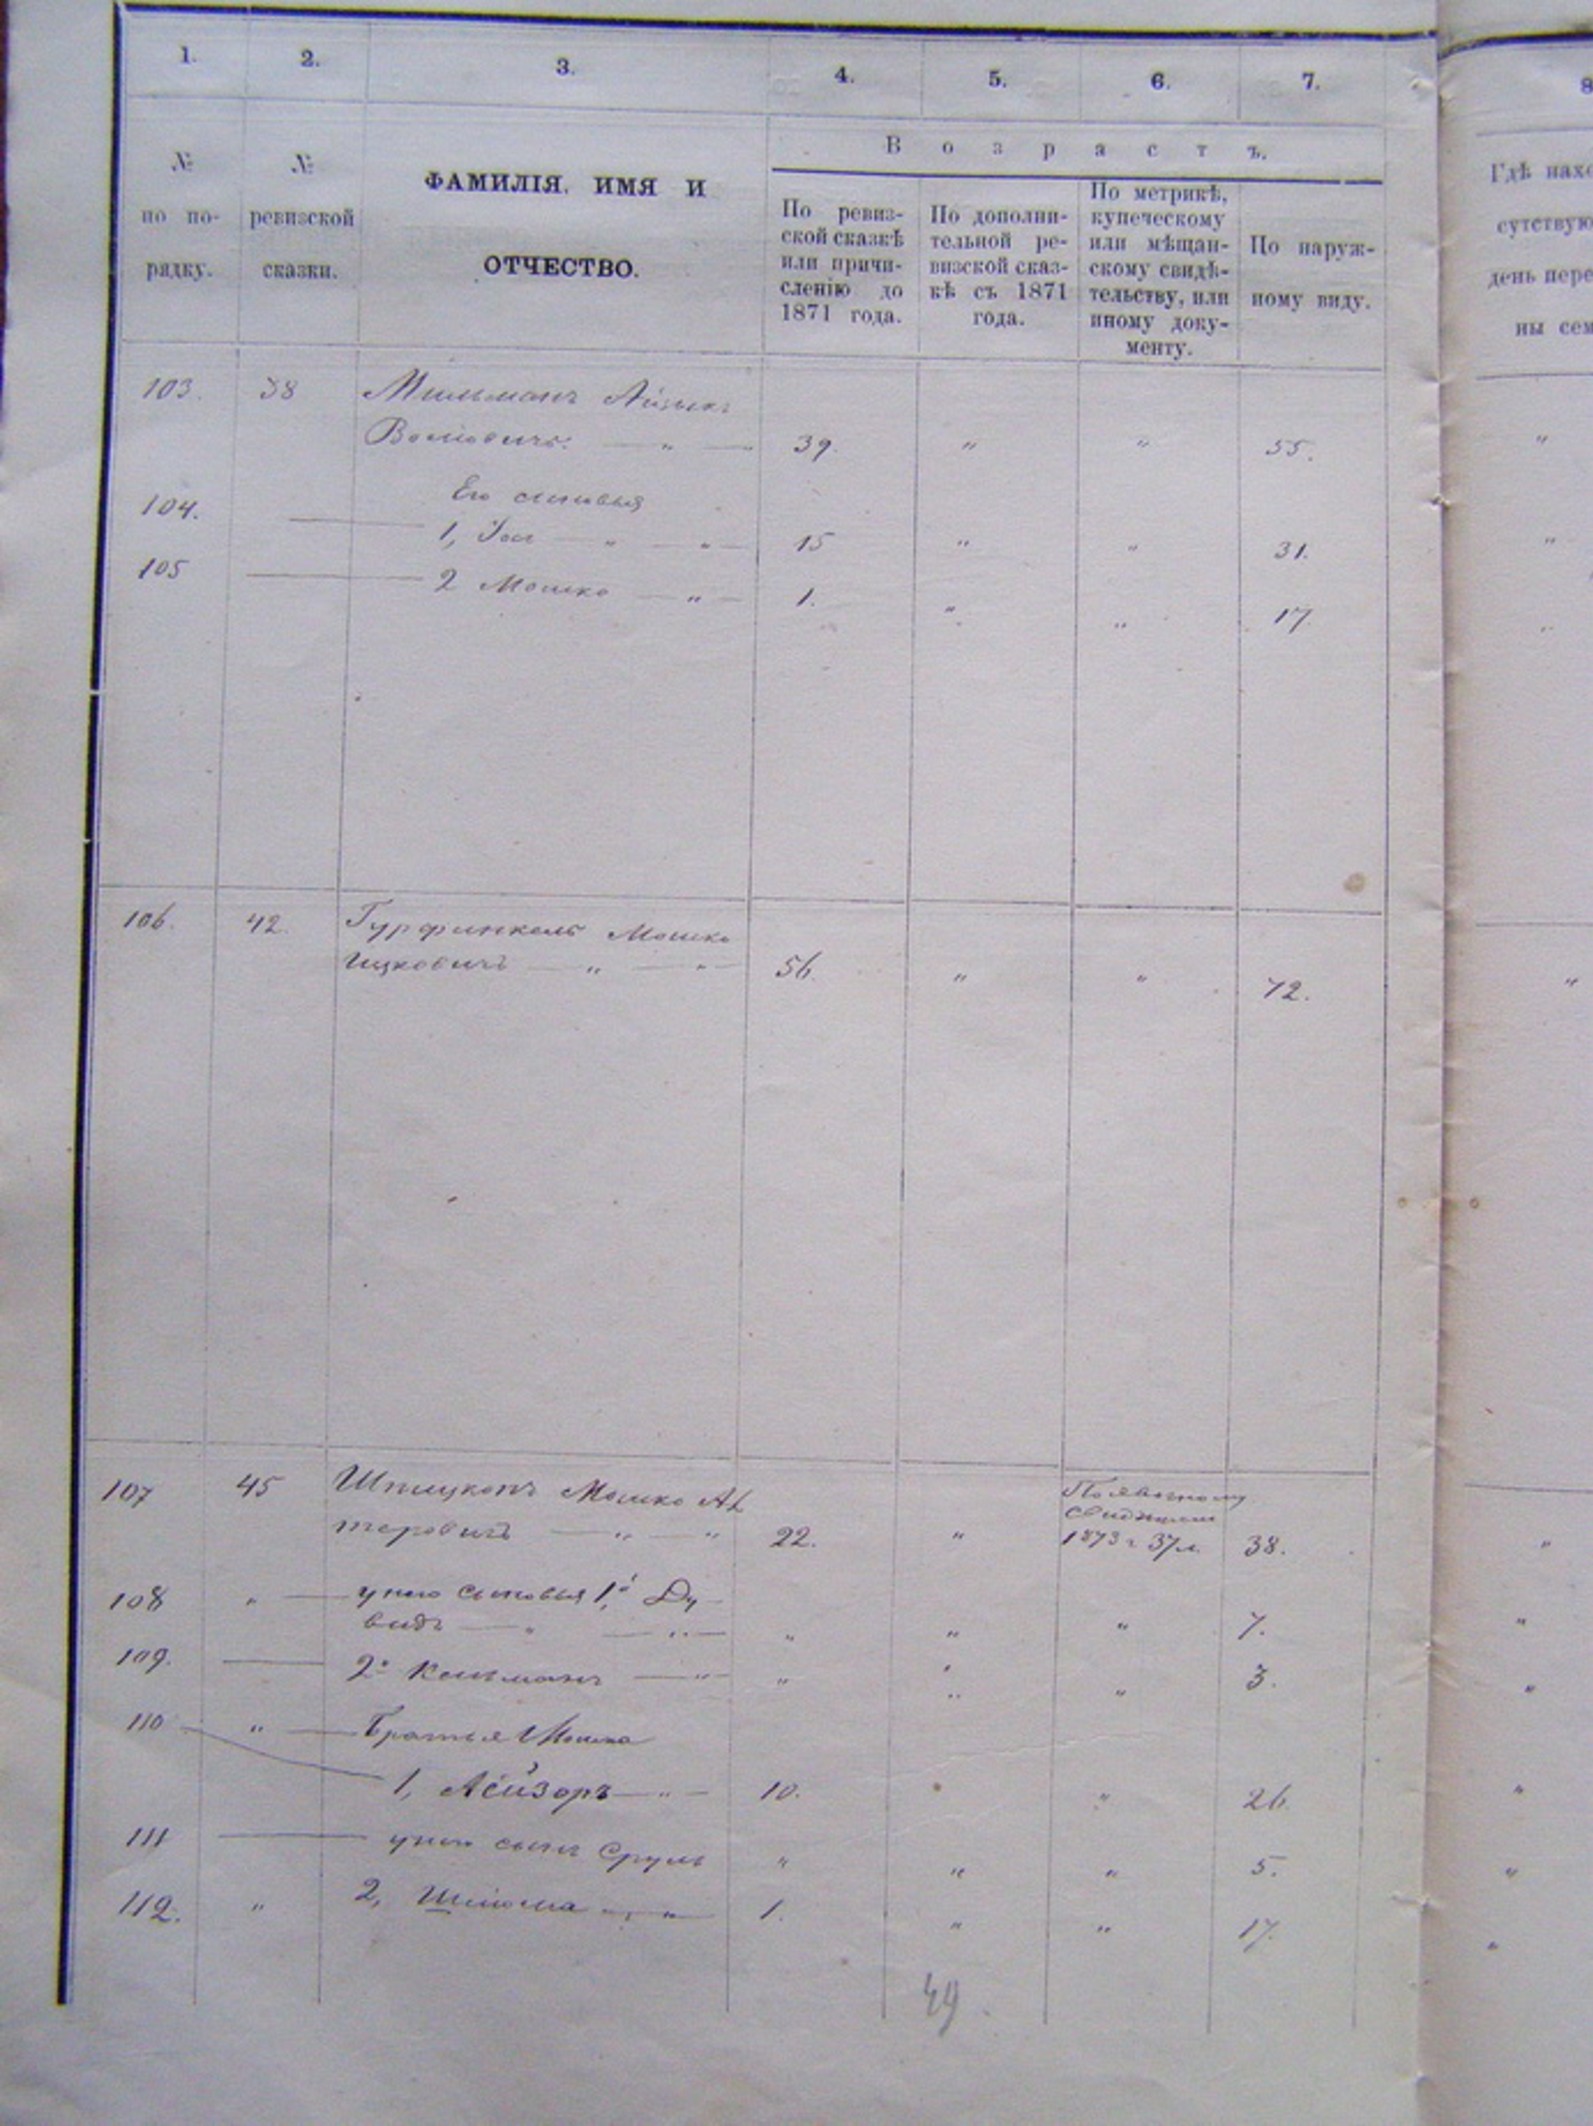 1. 2. 3. 4. 5. 6. 7. 8
№ по по-рядку.
№ ревизской сказки.
ФАМИЛІЯ, ИМЯ И
ОТЧЕСТВО.
В о з р а с т ъ.
По ревиз-
ской сказкѣ
или причи-
сленію до
1871 года.
По дополни-
тельной ре-
визской сказ-
кѣ съ 1871
года.
По метрикѣ,
купеческому
или мѣщан-
скому свидѣ-
тельству, или
иному доку-
менту.
По наруж-
ному виду.
Гдѣ нахо
сутствую
день пере
ны сем
103. 38 Мильманъ Айзикъ
Волковичъ — „ — 39. „ „ 55. „
Его сыновья
104. — 1, — „ — „ — 15 „ „ 31. „
105 — 2 Мошко — „ — 1. „ „ 17 „
106. 42. Гурфинкель Мошко
Ицковичъ — „ — „ — 56. „ „ 72. „
107 45 Шпицкопъ Мошко Ал
теровичъ — „ — „ 22. „ 1873 г 37 л. 38. „
108 „ — у него сыновья 1й Ду-
видъ — „ — „ — „ „ „ 7. „
109. — 2й Кельманъ — „ — „ „ „ 3. „
110 „ — Братья Мошка
1, Лейзоръ — „ — 10. „ 26. „
111 — у него сынъ Сруль „ „ „ 5. „
112. „ 2, Шлiома — „ — 1. „ „ 17. „
49.